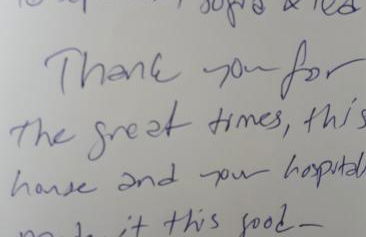 Thank you for
the great times, this
house and your hospital
it this good-